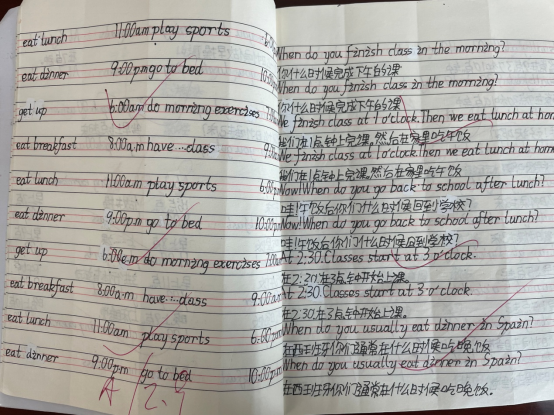 eat lunch 11:00am play sports
eat dinner 9:00pm go to bed
get up 6:00am do morning exercises
eat breakfast 8:00a.m have...class
eat lunch 11:00am play sports 6:00pm
eat dinner 9:00pm go to bed 10:00pm
get up 6:00a.m do morning exercises 7:00am
eat breakfast 8:00a.m have...class 9:00am
eat lunch 11:00am play sports 6:00pm
eat dinner 9:00pm go to bed 10:00pm
A 12.7
When do you finish class in the morning?
你什么时候完成下午的课
When do you finish class in the morning?
你什么时候完成下午的课
We finish class at 1 o'clock. Then we eat lunch at home
我们在1点钟上完课,然后在家里吃午饭
We finish class at 1 o'clock. Then we eat lunch at home
我们在1点钟上完课,然后在家里吃午饭
Now! When do you go back to school after lunch?
哇!午饭后你们什么时候回到学校?
Now! When do you go back to school after lunch?
哇!午饭后你们什么时候回到学校?
At 2:30. Classes start at 3 o'clock.
在2:30.在3点钟开始上课。
At 2:30. Classes start at 3 o'clock.
在2:30.在3点钟开始上课。
When do you usually eat dinner in Spain?
在西班牙你们通常在什么时候吃晚饭。
When do you usually eat dinner in Spain?
在西班牙你们通常在什么时候吃晚饭。